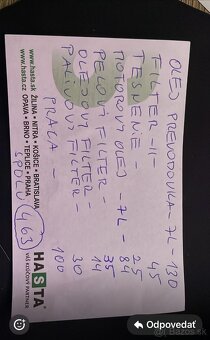 OLEJ PREVODOVKA - 7L - 130
FILTER - 11 - 45
TESNENIE - 25
MOTOROVÝ OLEJ - 7L - 84
PEĽOVÝ FILTER - 35
OLEJOVÝ FILTER - 14
PALIVOVÝ FILTER - 30
PRÁCA - 100
SPOLU 463
HASTA
VÁŠ KĽÚČOVÝ PARTNER
www.hasta.sk ŽILINA • NITRA • KOŠICE • BRATISLAVA
www.hasta.cz OPAVA • BRNO • TEPLICE • PRAHA
Odpovedať